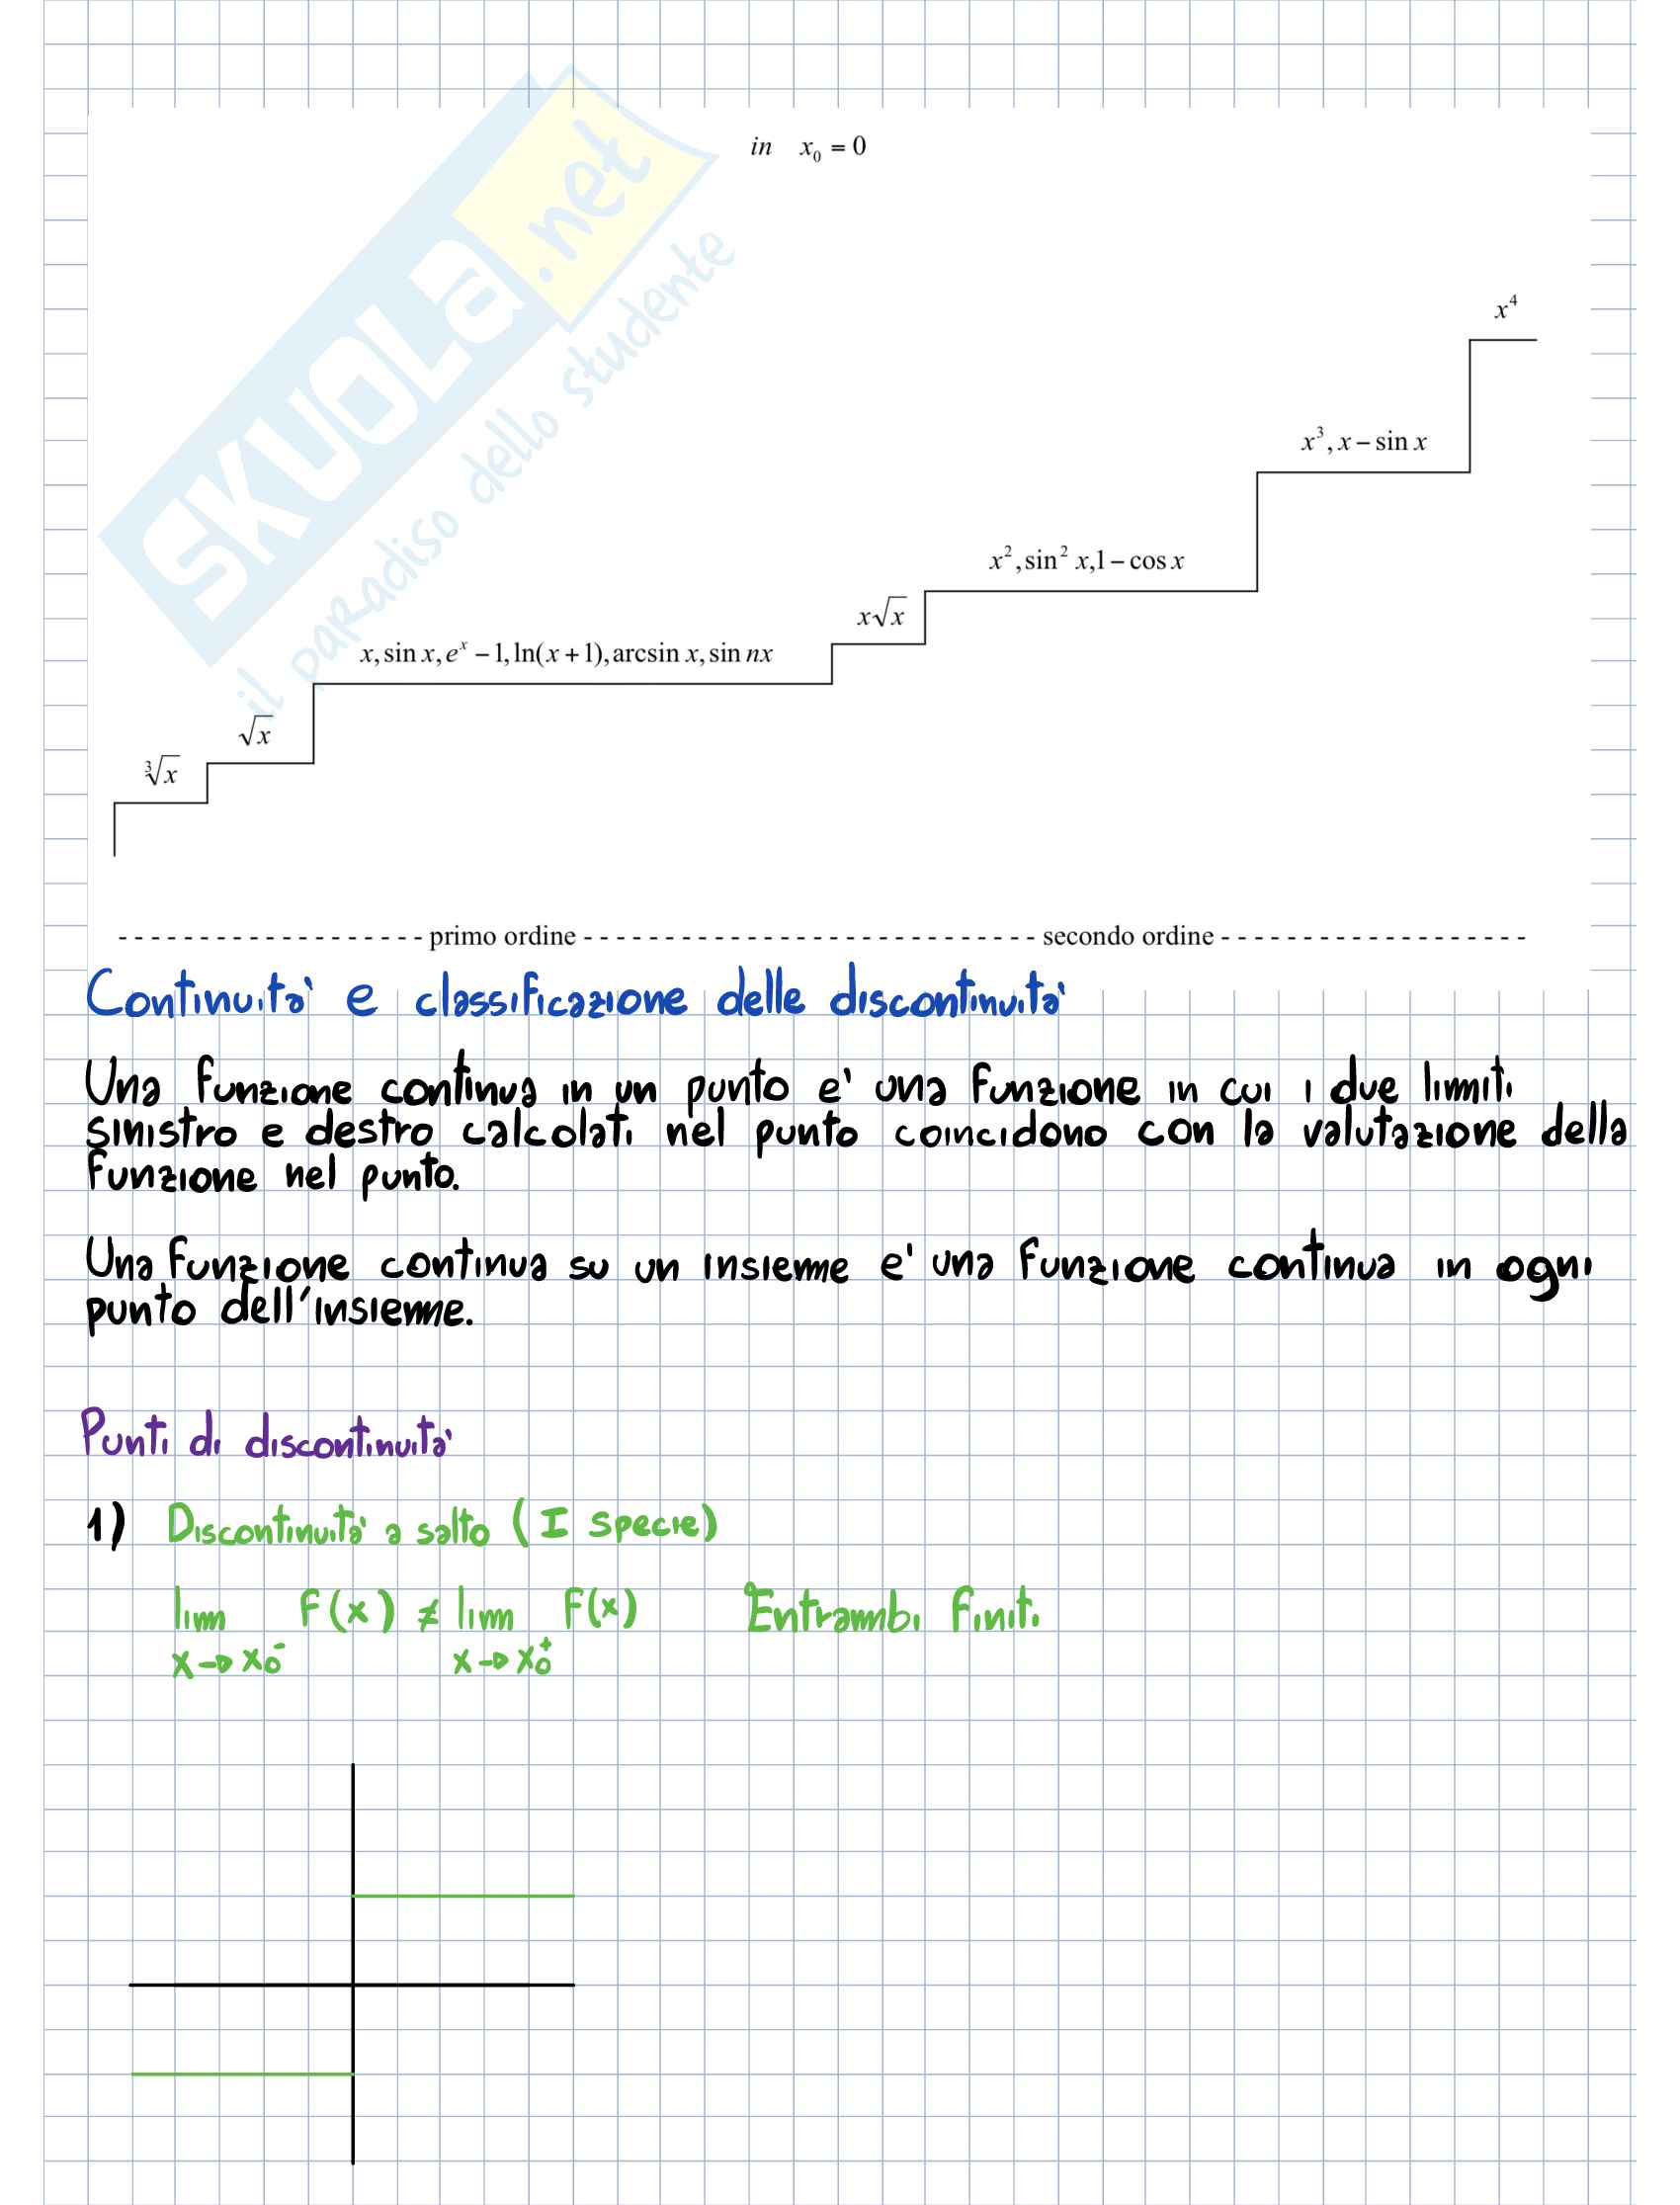 SKUOLa.net
il paradiso dello studente
in x₀ = 0
x⁴
x³, x − sin x
x², sin² x, 1 − cos x
x√x
x, sin x, eˣ − 1, ln(x + 1), arcsin x, sin nx
√x
∛x
primo ordine secondo ordine
Continuita' e classificazione delle discontinuita'
Una funzione continua in un punto e' una funzione in cui i due limiti
sinistro e destro calcolati nel punto coincidono con la valutazione della
funzione nel punto.
Una funzione continua su un insieme e' una funzione continua in ogni
punto dell'insieme.
Punti di discontinuita'
1) Discontinuita' a salto (I specie)
lim F(x) ≠ lim F(x) Entrambi finiti
x→x₀⁻ x→x₀⁺